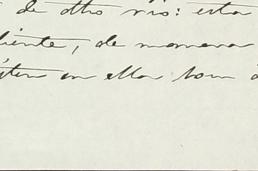 de otro rio: esta
liente, de manera
sten en ellas bom